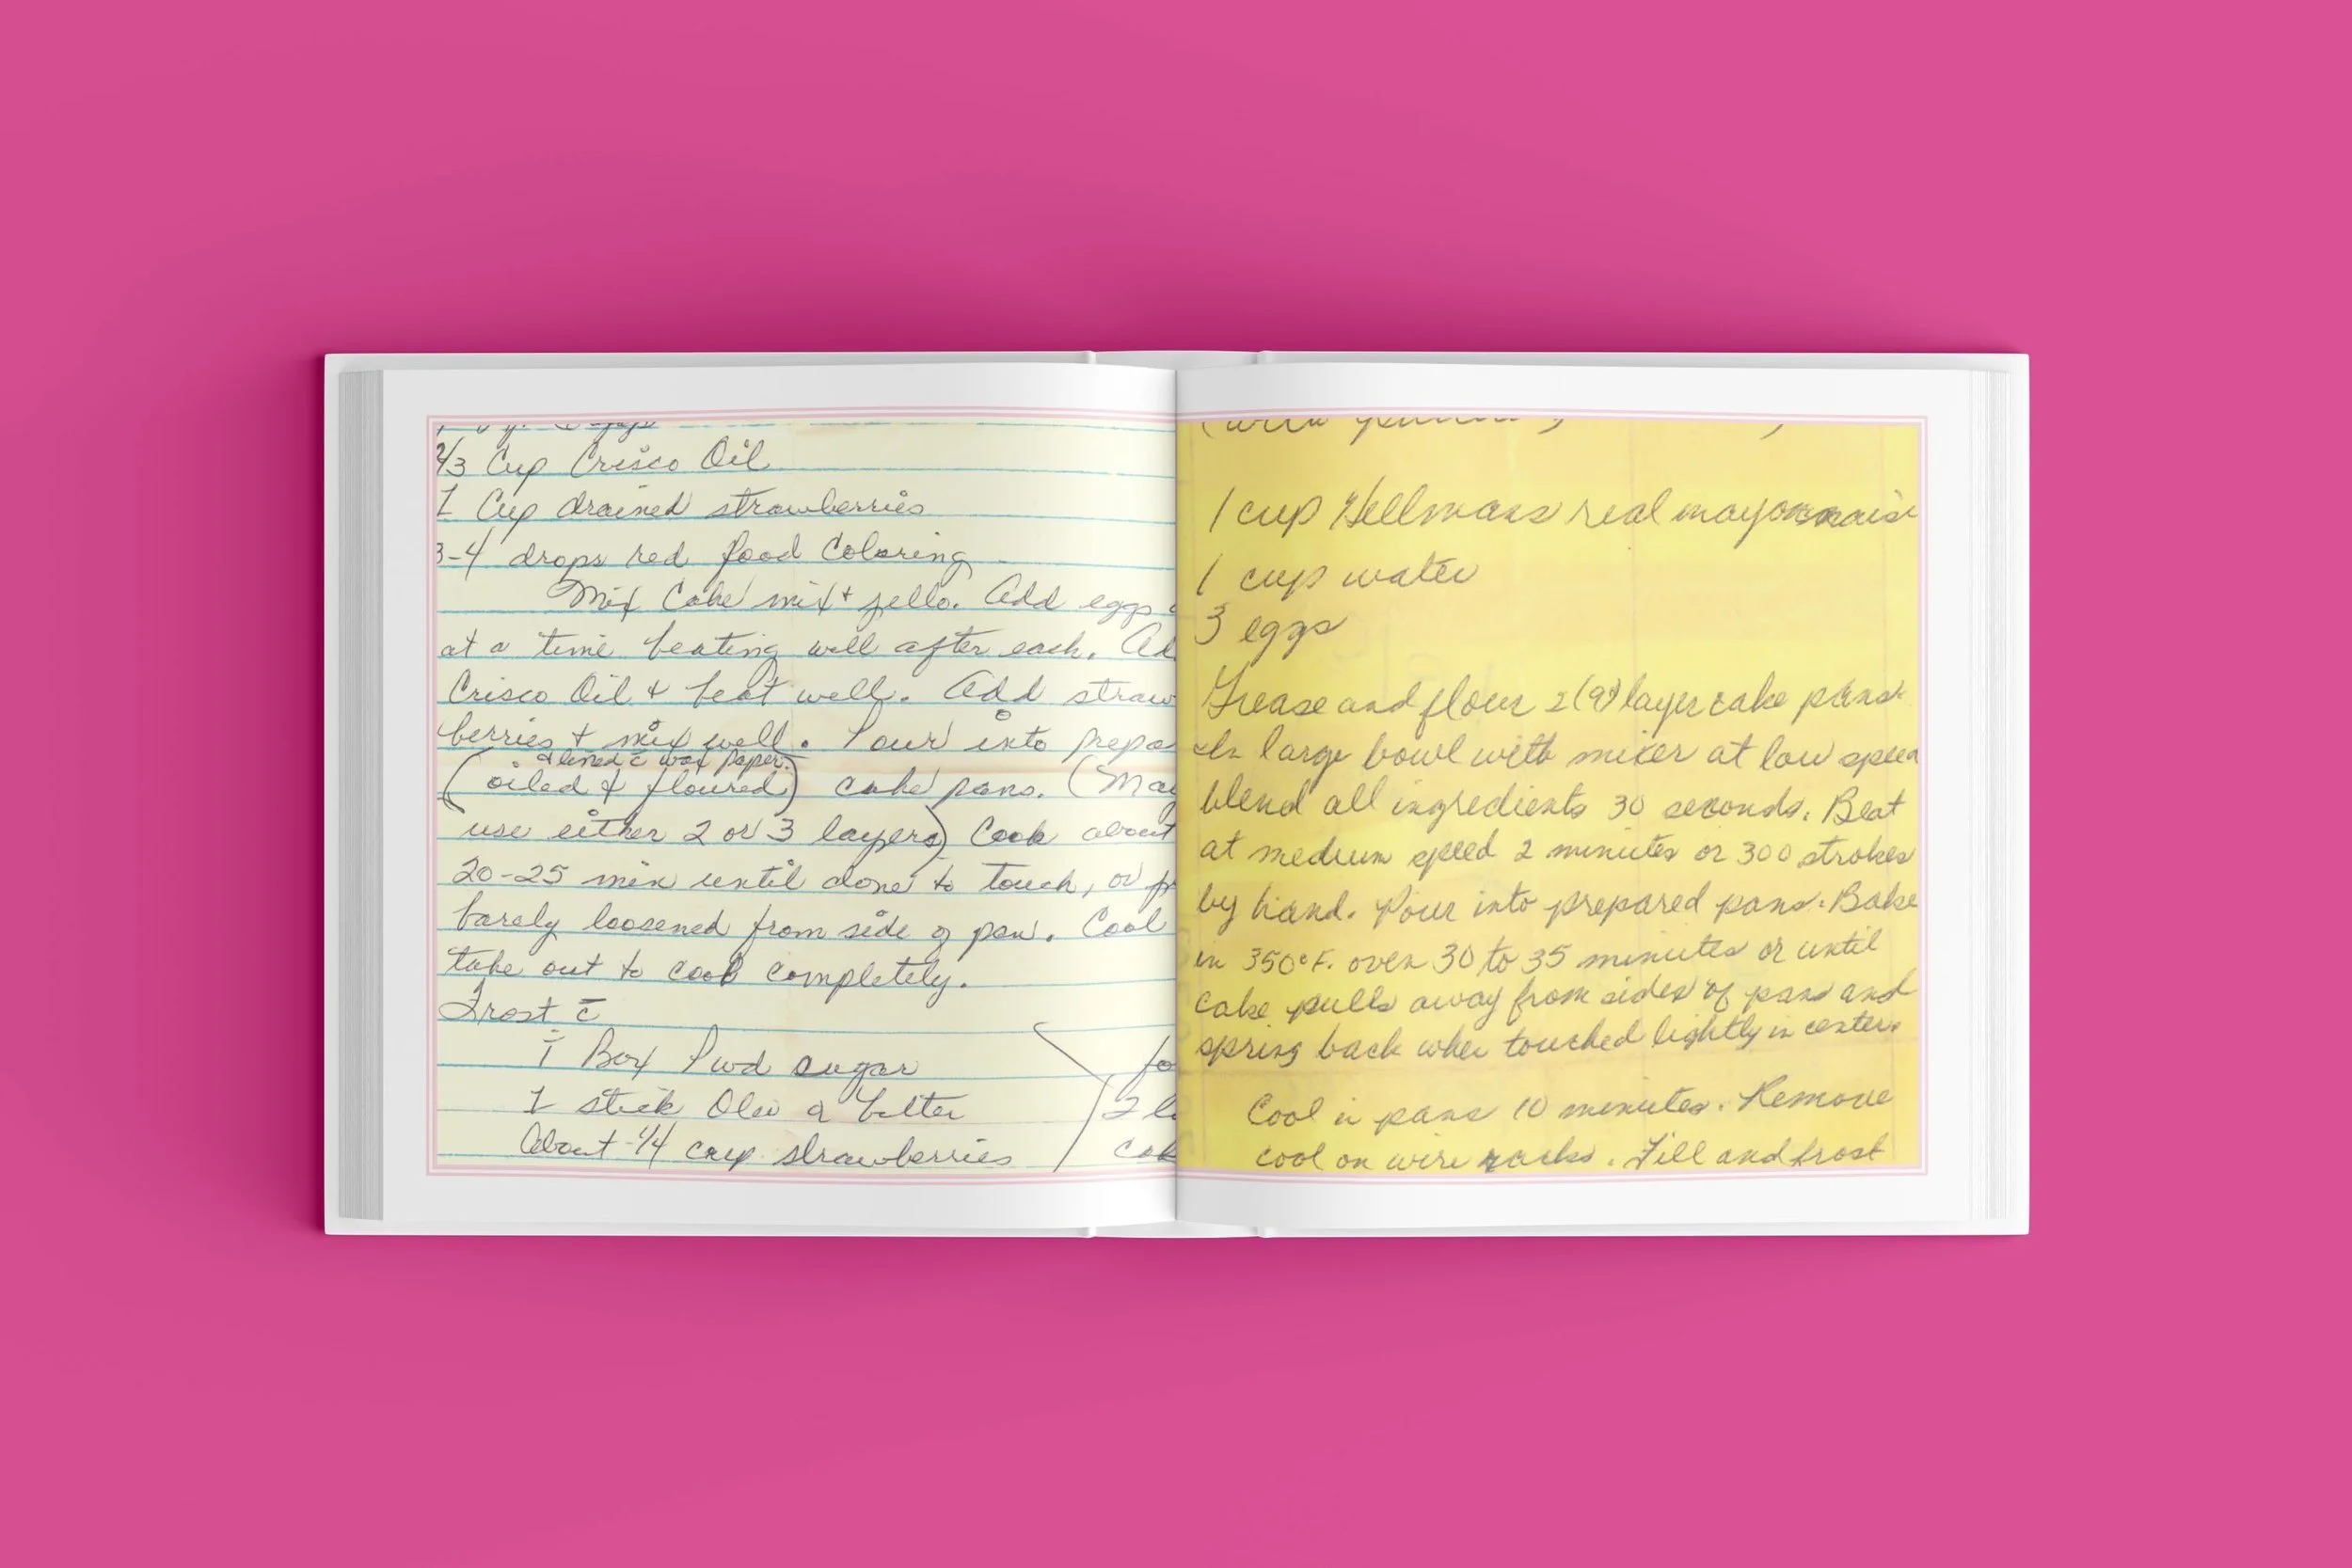 2/3 Cup Crisco Oil
1 Cup drained strawberries
3-4 drops red food Coloring
Mix Cake mix + jello. Add eggs
at a time beating well after each. Ad
Crisco Oil & beat well. Add straw
berries + mix well. Pour into prepa
& lined c̄ wax paper.
(oiled & floured) cake pans. (May
use either 2 or 3 layers) Cook about
20-25 min until done to touch, or
barely loosened from side of pan. Cool
take out to cool completely.
Frost c̄
1 Box Pwd sugar
1 stick Oleo or butter
About 1/4 cup strawberries
fo
2 la
cak
1 cup Hellmans real mayonnaise
1 cup water
3 eggs
Grease and flour 2 (9") layer cake pans.
In large bowl with mixer at low speed
blend all ingredients 30 seconds. Beat
at medium speed 2 minutes or 300 strokes
by hand. Pour into prepared pans. Bake
in 350°F. oven 30 to 35 minutes or until
cake pulls away from sides of pans and
spring back when touched lightly in center.
Cool in pans 10 minutes. Remove
cool on wire racks. Fill and frost